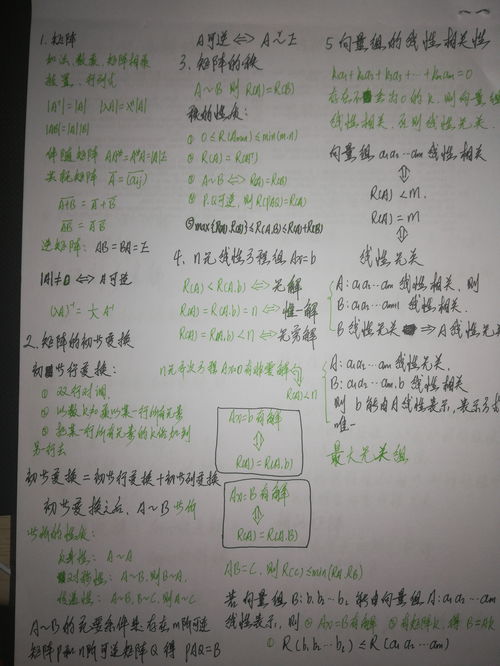 1. 矩阵
加法、数乘、矩阵相乘
转置、行列式
|Aᵀ| = |A|  |λA| = λⁿ|A|
|AB| = |A||B|
伴随矩阵 AA* = A*A = |A|E
共轭矩阵 Ā = (āij)
逆矩阵: AB = BA = E
|A| ≠ 0 ⇔ A可逆
(λA)⁻¹ = 1/λ A⁻¹
2. 矩阵的初等变换
初等行变换:
① 双行对调
② 以数k和乘以某一行所有元素
③ 把某一行所有元素的k倍加到
另一行去
初等变换 = 初等行变换 + 初等列变换
初等变换之后, A~B 等价
等价的性质:
反身性: A~A
对称性: A~B, 则B~A
传递性: A~B, B~C, 则A~C
A~B的充要条件是存在m阶可逆
矩阵P和n阶可逆矩阵Q 得 PAQ = B
A可逆 ⇔ A~E
3. 矩阵的秩
A~B 则 R(A) = R(B)
秩的性质:
① 0 ≤ R(Am×n) ≤ min(m.n)
② R(A) = R(Aᵀ)
③ A~B ⇔ R(A) = R(B)
④ P.Q可逆 则 R(PAQ) = R(A)
⑤ max{R(A).R(B)} ≤ R(A.B) ≤ R(A)+R(B)
4. n元线性方程组 Ax = b
R(A) < R(A.b) ⇔ 无解
R(A) = R(A.b) = n ⇔ 惟一解
R(A) = R(A.b) < n ⇔ 无穷解
n元齐次方程 Ax=0 有非零解 ⇔
R(A) < n
Ax = b 有解
⇕
R(A) = R(A.b)
AX = B 有解
⇕
R(A) = R(A.B)
AB = C, 则 R(C) ≤ min(RA.RB)
若向量组 B: b₁ b₂ … bₗ 能由向量组 A: a₁ a₂ … am
线性表示, 则 ① AX = B有解 ② 有矩阵K, 得 B = AK
③ R(b₁ b₂ … bₗ) ≤ R(a₁ a₂ … am)
5 向量组的线性相关性
k₁a₁ + k₂a₂ + k₃a₃ + … + kmam = 0
存在不全为0的k, 则向量组
线性相关, 否则线性无关.
向量组 a₁ a₂ … am 线性相关
⇕
R(A) < m.
R(A) = m
⇕
线性无关
A: a₁ a₂ … am 线性相关, 则
B: a₁ a₂ … am+1 线性相关.
B 线性无关 ⇒ A 线性无关
A: a₁ a₂ … am 线性无关.
B: a₁ a₂ … am. b 线性相关
则 b 能由A线性表示, 表示
唯一
最大无关组